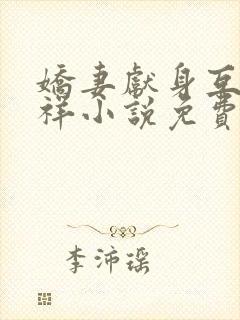 嬌妻獻身互
祥小說免費
李沛瑶